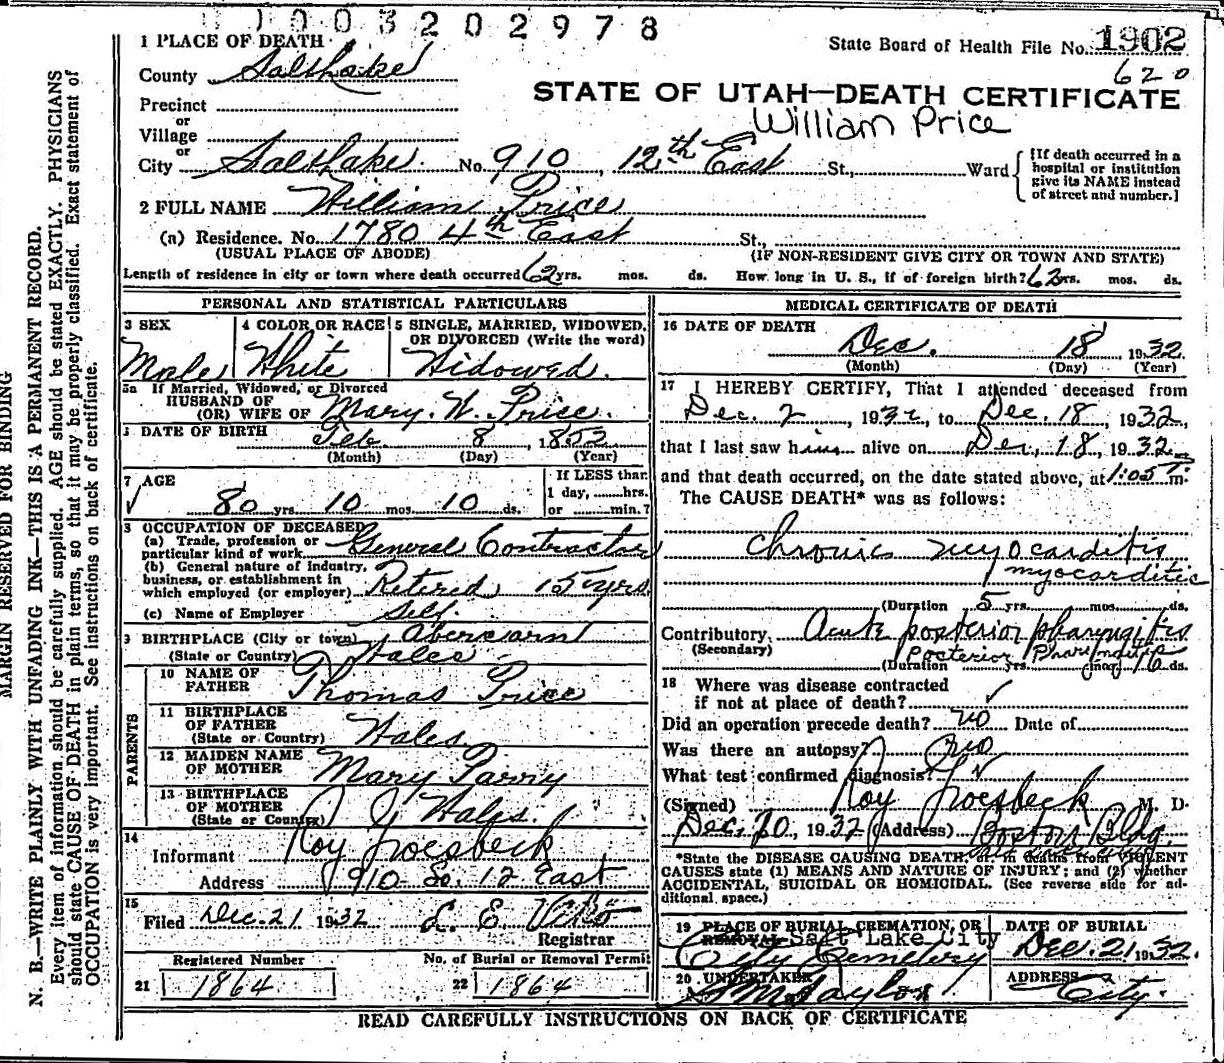 003202978
1 PLACE OF DEATH
State Board of Health File No. 1902
County Salt Lake
620
STATE OF UTAH—DEATH CERTIFICATE
Precinct
or
William Price
Village
or
City Salt Lake. No. 910, 12th East St., Ward
[If death occurred in a
hospital or institution
give its NAME instead
of street and number.]
2 FULL NAME William Price
(a) Residence. No. 1780 4th East St.,
(USUAL PLACE OF ABODE) (IF NON-RESIDENT GIVE CITY OR TOWN AND STATE)
Length of residence in city or town where death occurred 62 yrs. mos. ds. How long in U. S., if of foreign birth? 62 yrs. mos. ds.
PERSONAL AND STATISTICAL PARTICULARS
3 SEX 4 COLOR OR RACE 5 SINGLE, MARRIED, WIDOWED,
OR DIVORCED (Write the word)
Male White Widowed.
5a If Married, Widowed, or Divorced
HUSBAND OF
(OR) WIFE OF Mary. W. Price.
DATE OF BIRTH Feb 8, 1852
(Month) (Day) (Year)
7 AGE If LESS than
1 day, hrs.
80 yrs. 10 mos. 10 ds. or min.?
8 OCCUPATION OF DECEASED
(a) Trade, profession or
particular kind of work General Contractor
(b) General nature of industry,
business, or establishment in
which employed (or employer) Retired 15 yrs.
(c) Name of Employer Self.
9 BIRTHPLACE (City or town) Abercarn
(State or Country) Wales
PARENTS
10 NAME OF
FATHER Thomas Price
11 BIRTHPLACE
OF FATHER
(State or Country) Wales
12 MAIDEN NAME
OF MOTHER Mary Parry
13 BIRTHPLACE
OF MOTHER
(State or Country) Wales.
14
Informant Roy Groesbeck
Address 910 So. 12 East
15
Filed Dec. 21 1932
Registrar
Registered Number No. of Burial or Removal Permit
21 1864 22 1864
MEDICAL CERTIFICATE OF DEATH
16 DATE OF DEATH
Dec. 18 1932
(Month) (Day) (Year)
17 I HEREBY CERTIFY, That I attended deceased from
Dec. 2, 1932, to Dec. 18, 1932,
that I last saw him alive on Dec. 18, 1932
and that death occurred, on the date stated above, at 1:05 m.
The CAUSE DEATH* was as follows:
Chronic myocarditis
myocarditic
(Duration 5 yrs. mos. ds.
Contributory Acute posterior pharyngitis
(Secondary) Posterior
(Duration yrs. mos. 16 ds.
18 Where was disease contracted
if not at place of death? ✓
Did an operation precede death? no Date of
Was there an autopsy? no
What test confirmed diagnosis?
(Signed) Roy Groesbeck M. D.
Dec. 20, 1932 (Address) Boston Bldg.
*State the DISEASE CAUSING DEATH, or, in deaths from VIOLENT
CAUSES state (1) MEANS AND NATURE OF INJURY; and (2) whether
ACCIDENTAL, SUICIDAL OR HOMICIDAL. (See reverse side for ad-
ditional space.)
19 PLACE OF BURIAL, CREMATION, OR DATE OF BURIAL
REMOVAL Salt Lake City
City Cemetery Dec. 21 1932.
20 UNDERTAKER ADDRESS
Taylor City.
READ CAREFULLY INSTRUCTIONS ON BACK OF CERTIFICATE
MARGIN RESERVED FOR BINDING
N. B.—WRITE PLAINLY WITH UNFADING INK—THIS IS A PERMANENT RECORD.
Every item of information should be carefully supplied. AGE should be stated EXACTLY. PHYSICIANS
should state CAUSE OF DEATH in plain terms, so that it may be properly classified. Exact statement of
OCCUPATION is very important. See instructions on back of certificate.